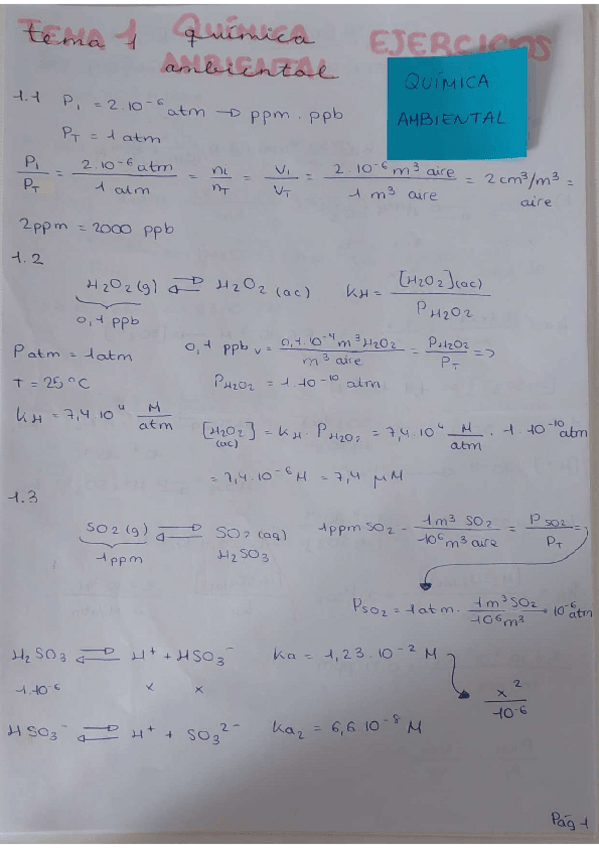 TEMA 1 QUÍMICA AMBIENTAL EJERCICIOS
tema 1 química
ambiental
QUÍMICA
AMBIENTAL
1.1 P₁ = 2·10⁻⁶ atm → ppm · ppb
P_T = 1 atm
P₁/P_T = 2·10⁻⁶ atm / 1 atm = n_i/n_T = V_i/V_T = 2·10⁻⁶ m³ aire / 1 m³ aire = 2 cm³/m³ aire =
2 ppm = 2000 ppb
1.2
H₂O₂ (g) ⇌ H₂O₂ (ac) K_H = [H₂O₂](ac) / P_H₂O₂
0,1 ppb
P atm = 1 atm 0,1 ppb_v = 0,1·10⁻⁴ m³ H₂O₂ / m³ aire = P_H₂O₂ / P_T =>
T = 25ºC P_H₂O₂ = 1·10⁻¹⁰ atm
K_H = 7,4·10⁴ M/atm [H₂O₂](ac) = K_H · P_H₂O₂ = 7,4·10⁴ M/atm · 1·10⁻¹⁰ atm
= 7,4·10⁻⁶ M = 7,4 μM
1.3
SO₂ (g) ⇌ SO₂ (aq) 1 ppm SO₂ - 1 m³ SO₂ / 10⁶ m³ aire = P_SO₂ / P_T =
1 ppm H₂SO₃
P_SO₂ = 1 atm · 1 m³ SO₂ / 10⁶ m³ = 10⁻⁶ atm
H₂SO₃ ⇌ H⁺ + HSO₃⁻ Ka = 1,23·10⁻² M
1·10⁻⁶ x x x² / 10⁻⁶
HSO₃⁻ ⇌ H⁺ + SO₃²⁻ Ka₂ = 6,6 10⁻⁸ M
Pág 1